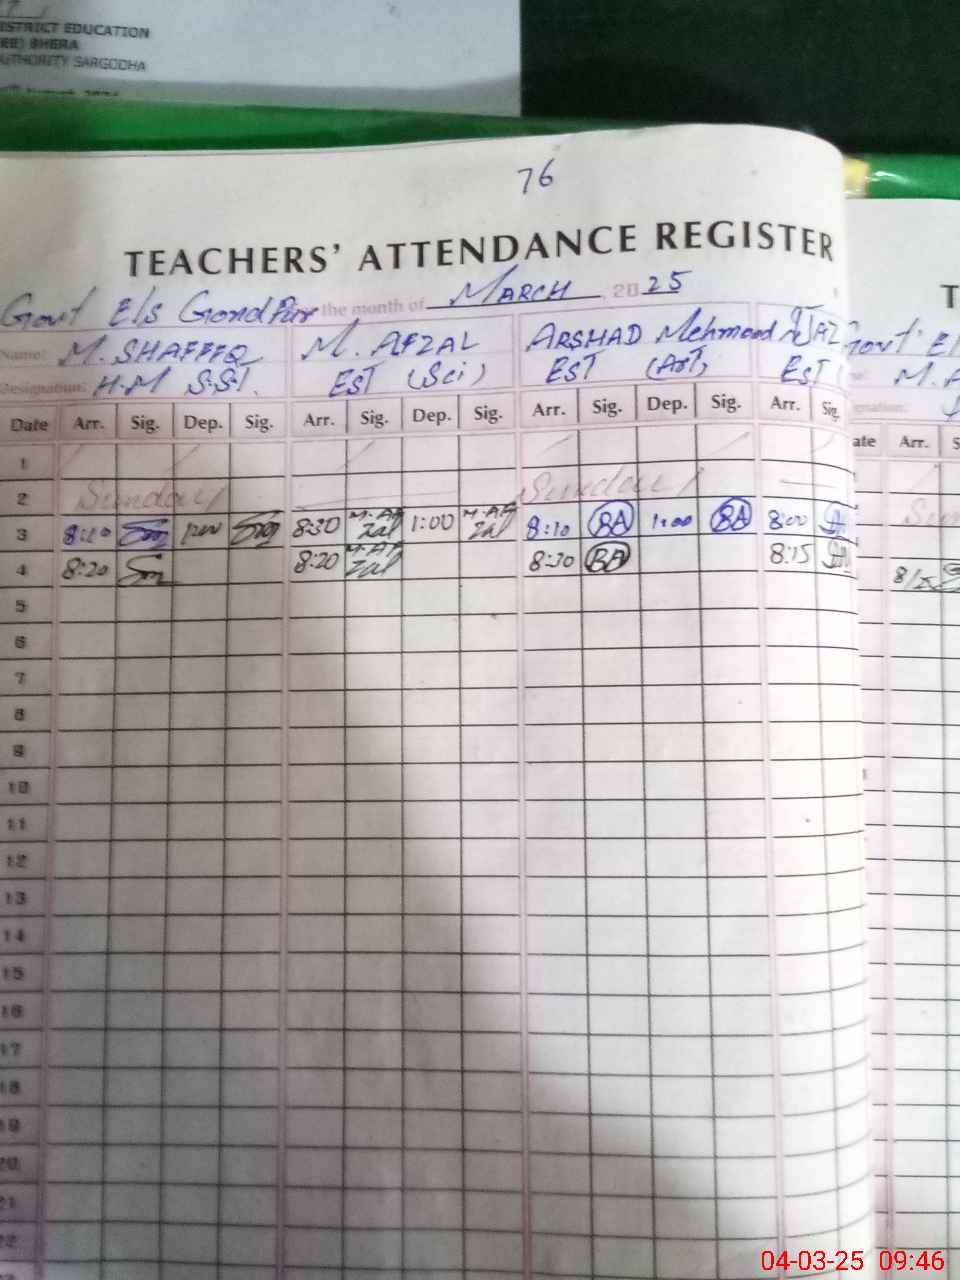 DISTRICT EDUCATION
BHERA
AUTHORITY SARGODHA
76
TEACHERS' ATTENDANCE REGISTER
Govt E/S the month of MARCH 2025
Name: M. SHAFFFQ M. AFZAL ARSHAD Mehmood
Designation: H.M S.S.T. EST (Sci) EST (Art) EST
Date Arr. Sig. Dep. Sig. Arr. Sig. Dep. Sig. Arr. Sig. Dep. Sig. Arr. Sig.
1
2 Sunday Sunday
3 8:10 8:30 M.AF Zal 1:00 M.AF Zal 8:10 BA 1:00 BA 8:00
4 8:20 8:20 M.AF Zal 8:30 BA 8:15
5
6
7
8
9
10
11
12
13
14
15
16
17
18
19
20
21
22
T
Govt E/
M. A
ate Arr. S
04-03-25 09:46